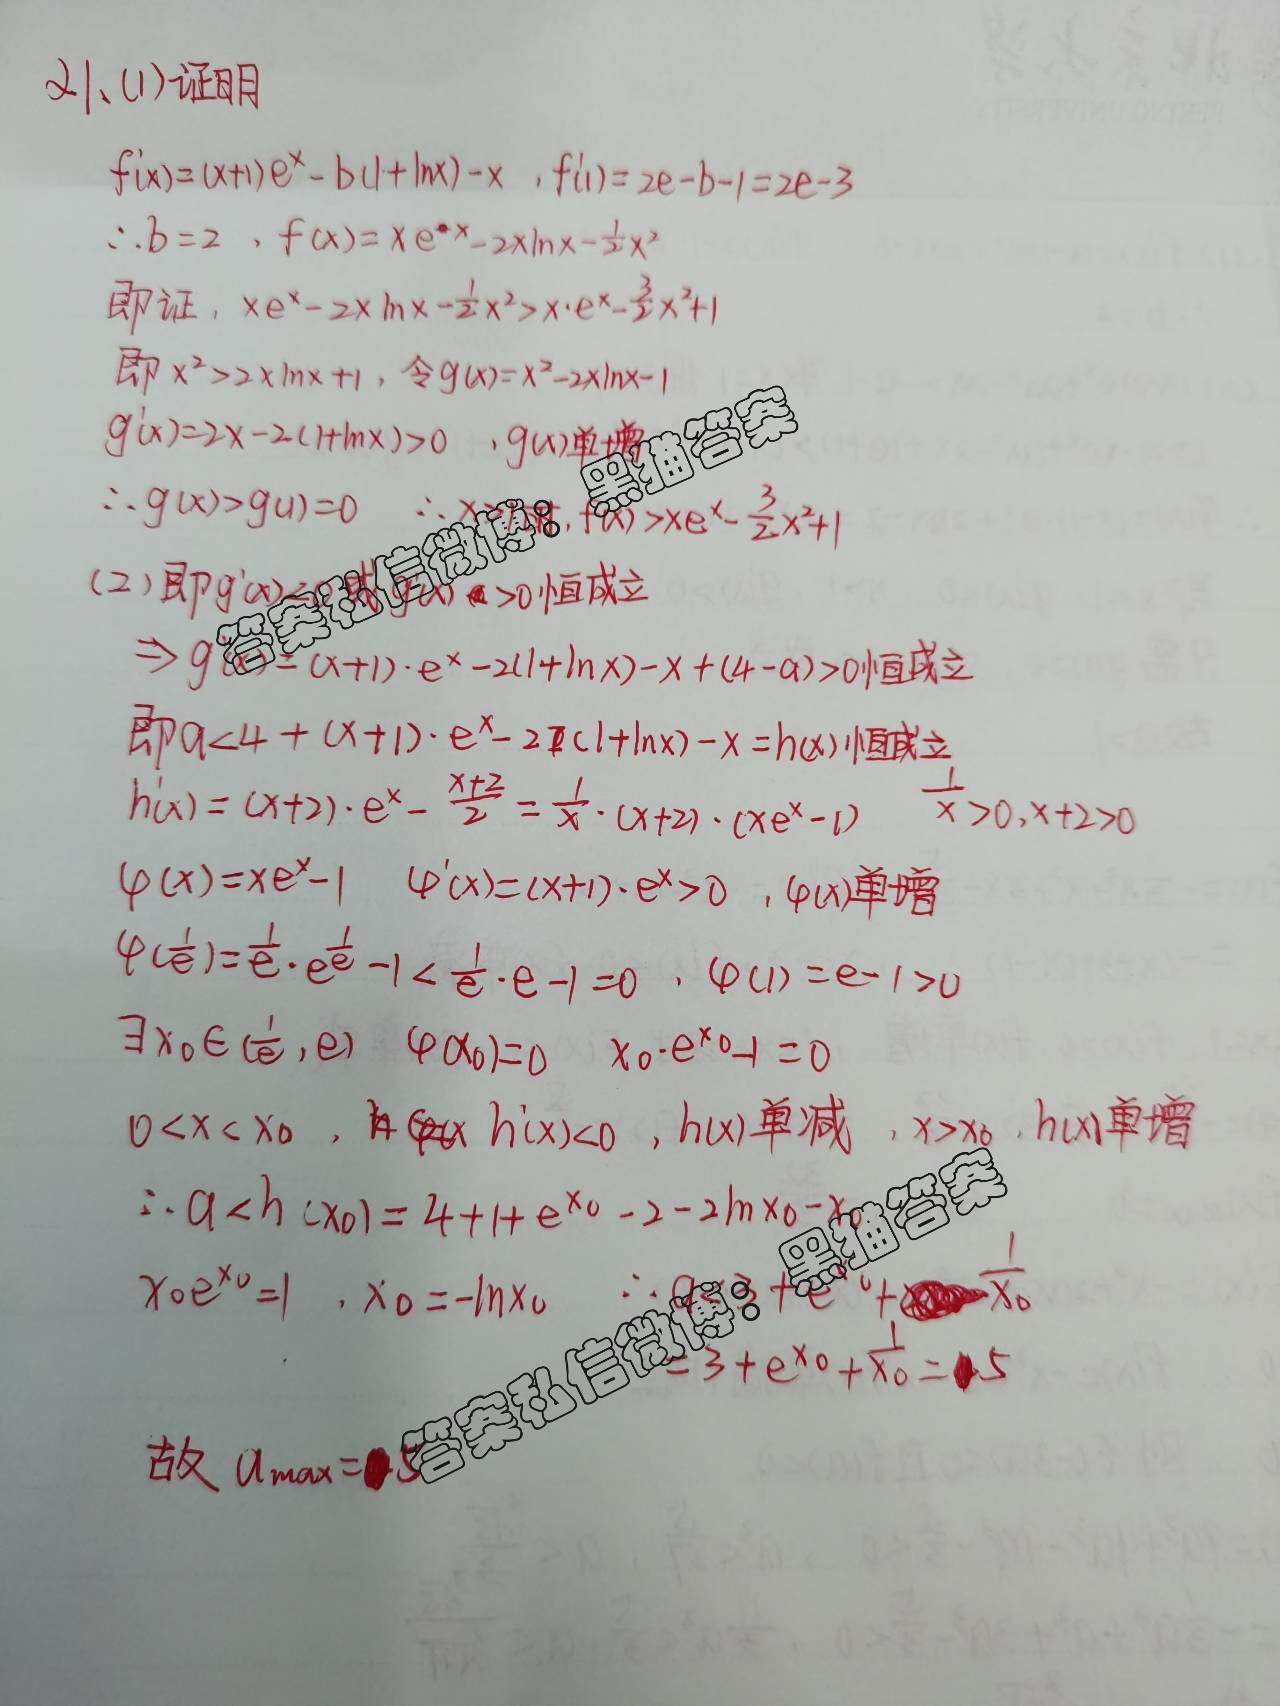 21、(1)证明
f'(x)=(x+1)e^x-b(1+lnx)-x，f'(1)=2e-b-1=2e-3
∴b=2，f(x)=xe^x-2xlnx-1/2x²
即证，xe^x-2xlnx-1/2x²>x·e^x-3/2x²+1
即x²>2xlnx+1，令g(x)=x²-2xlnx-1
g'(x)=2x-2(1+lnx)>0，g(x)单增
∴g(x)>g(1)=0 ∴x>1时，f(x)>xe^x-3/2x²+1
(2)即g'(x) g'(x)>0恒成立
⇒g'(x)=(x+1)·e^x-2(1+lnx)-x+(4-a)>0恒成立
即a<4+(x+1)·e^x-2(1+lnx)-x=h(x)恒成立
h'(x)=(x+2)·e^x-(x+2)/2=1/x·(x+2)·(xe^x-1) 1/x>0,x+2>0
φ(x)=xe^x-1 φ'(x)=(x+1)·e^x>0，φ(x)单增
φ(1/e)=1/e·e^(1/e)-1<1/e·e-1=0，φ(1)=e-1>0
∃x₀∈(1/e,e) φ(x₀)=0 x₀·e^x₀-1=0
0<x<x₀，h'(x)<0，h(x)单减，x>x₀，h(x)单增
∴a<h(x₀)=4+1+e^x₀-2-2lnx₀-x₀
x₀e^x₀=1，x₀=-lnx₀ ∴a<3+e^x₀+ 1/x₀
=3+e^x₀+1/x₀=5
故a_max=5
答案私信微博：黑猫答案
答案私信微博：黑猫答案